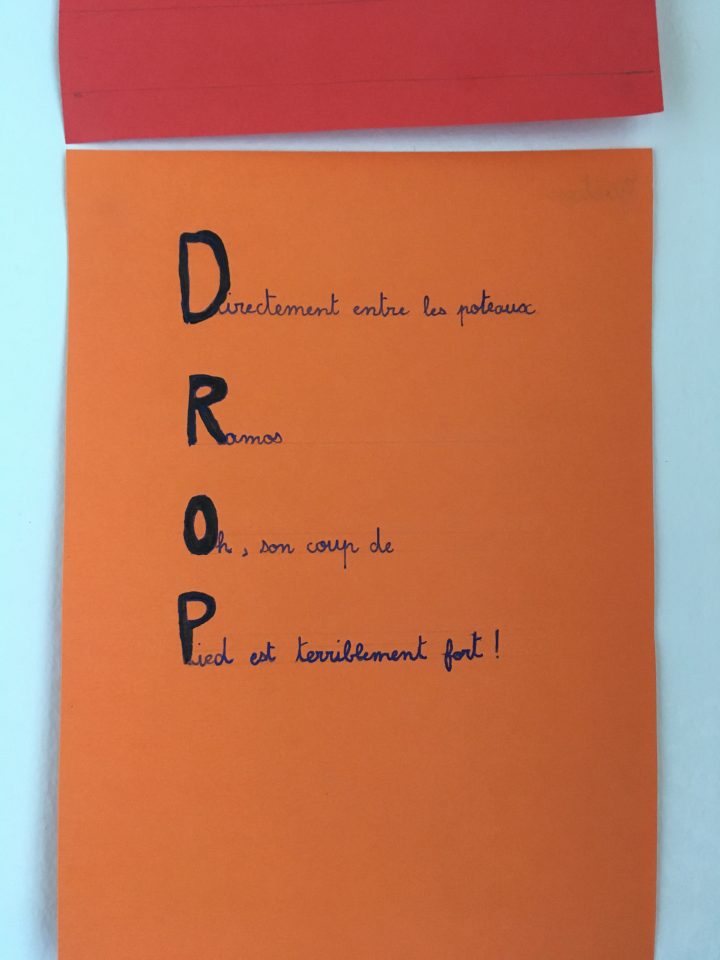 Directement entre les poteaux
Ramos
Oh, son coup de
Pied est terriblement fort !